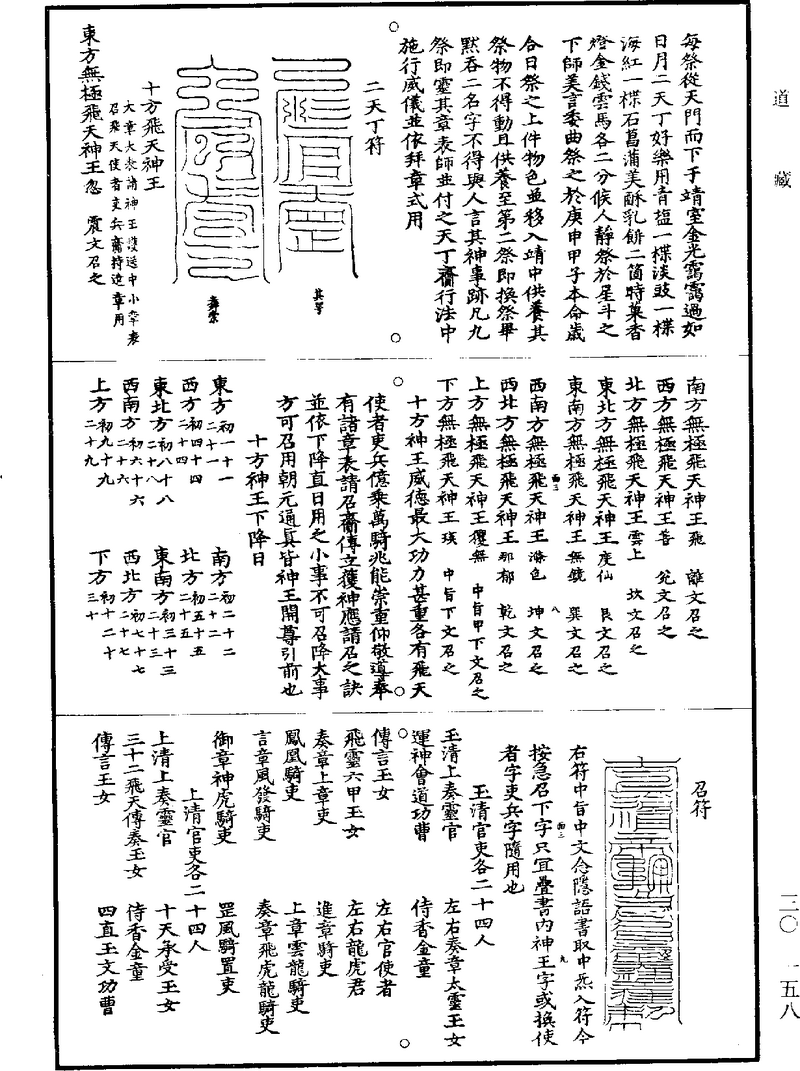 道藏
三〇 一五八
每祭從天門而下于靖室金光靄靄過如
日月二天丁好樂用青塩一楪淡豉一楪
海紅一楪石菖蒲美酥乳餅二箇時菓香
燈金錢雲馬各二分候人靜祭於星斗之
下師美言委曲祭之於庚申甲子本命歲
合日祭之上件物色並移入靖中供養其
祭物不得動且供養至第二祭即換祭畢
默吞二名字不得與人言其神事跡凡九
祭即靈其章表師並付之天丁齋行法中
施行威儀並依拜章式用
二天丁符
十方飛天神王
大章大表請神王護送中小章表
召飛天使者吏兵齎持遶章用
東方無極飛天神王忽 震文召之
南方無極飛天神王飛 離文召之
西方無極飛天神王菩 兌文召之
北方無極飛天神王雲上 坎文召之
東北方無極飛天神王度仙 艮文召之
東南方無極飛天神王無鏡 巽文召之
西南方無極飛天神王滌色 坤文召之
西北方無極飛天神王那郁 乾文召之
上方無極飛天神王攫無 中旨甲下文召之
下方無極飛天神王瑛 中旨下文召之
十方神王威德最大功力甚重各有飛天
使者吏兵億乘萬騎兆能崇重仰敬道奉
有諸章表請召齋傳立獲神應請召之訣
並依下降直日用之小事不可召降大事
方可召用朝元通眞皆神王開導引前也
十方神王下降日
東方初一十一二十一 南方初二十二二十二
西方初四十四二十四 北方初五十五二十五
東北方初八十八二十八 東南方初三十三二十三
西南方初六十六二十六 西北方初七十七二十七
上方初九十九二十九 下方初十二十三十
召符
右符中旨中文念隱語書取中炁入符令
按急召下字只宜疊書內神王字或換使
者字吏兵字隨用也
玉清官吏各二十四人
玉清上奏靈官 左右奏章太靈玉女
運神會道功曹 侍香金童
傳言玉女 左右官使者
飛靈六甲玉女 左右龍虎君
奏章上章吏 進章騎吏
鳳凰騎吏 上章雲龍騎吏
言章風發騎吏 奏章飛虎龍騎吏
御章神虎騎吏 罡風騎置吏
上清官吏各二十四人
上清上奏靈官 十天承受玉女
三十二飛天傳奏玉女 侍香金童
傳言玉女 四直玉文功曹